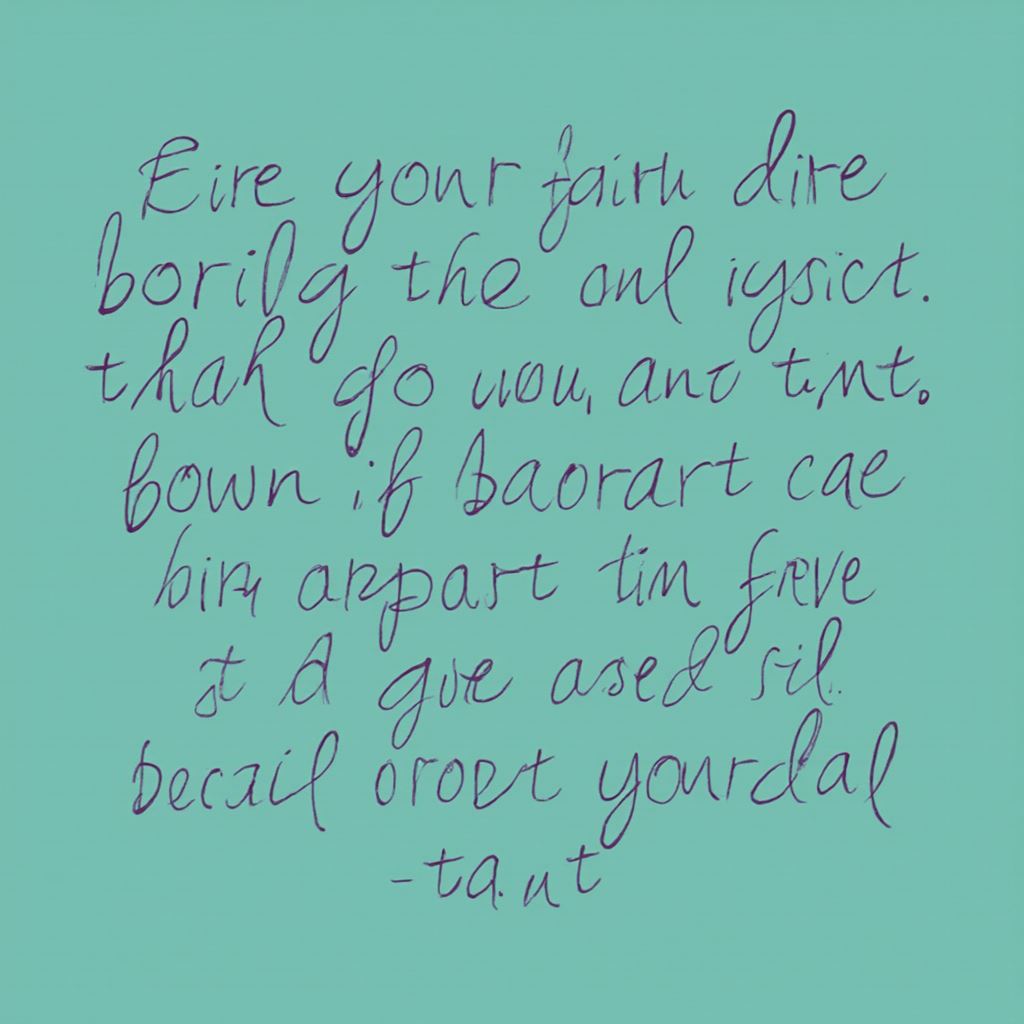 Eire your fairh dire
borilg the onl iysict.
thah go uou, anc tint.
bown if baorart cae
birn arpart tim freve
st d gve ased sil.
becail oroet yourdal
-ta.ut